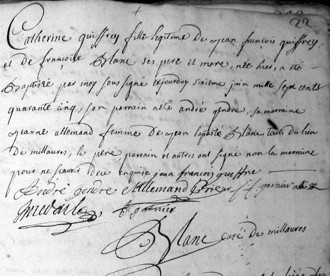 22
Catherine quiffrey fille legitime de jean françois quiffrey
et de francoise Blanc ses pere et mere, née hier, a été
Baptisée par moy sous signé cejourduy sixieme juin mille sept cents
quarante cinq, son parrain été andré gendre, sa marraine
jeanne allemand femme de jean baptiste Blanc tous du lieu
de millaures, le pere, parrain et autres ont signé non la marraine
pour ne scavoir de ce enquise jean francois queiffre
André gendre Allemand Prieur garnier
garnier
Blanc curé de millaures